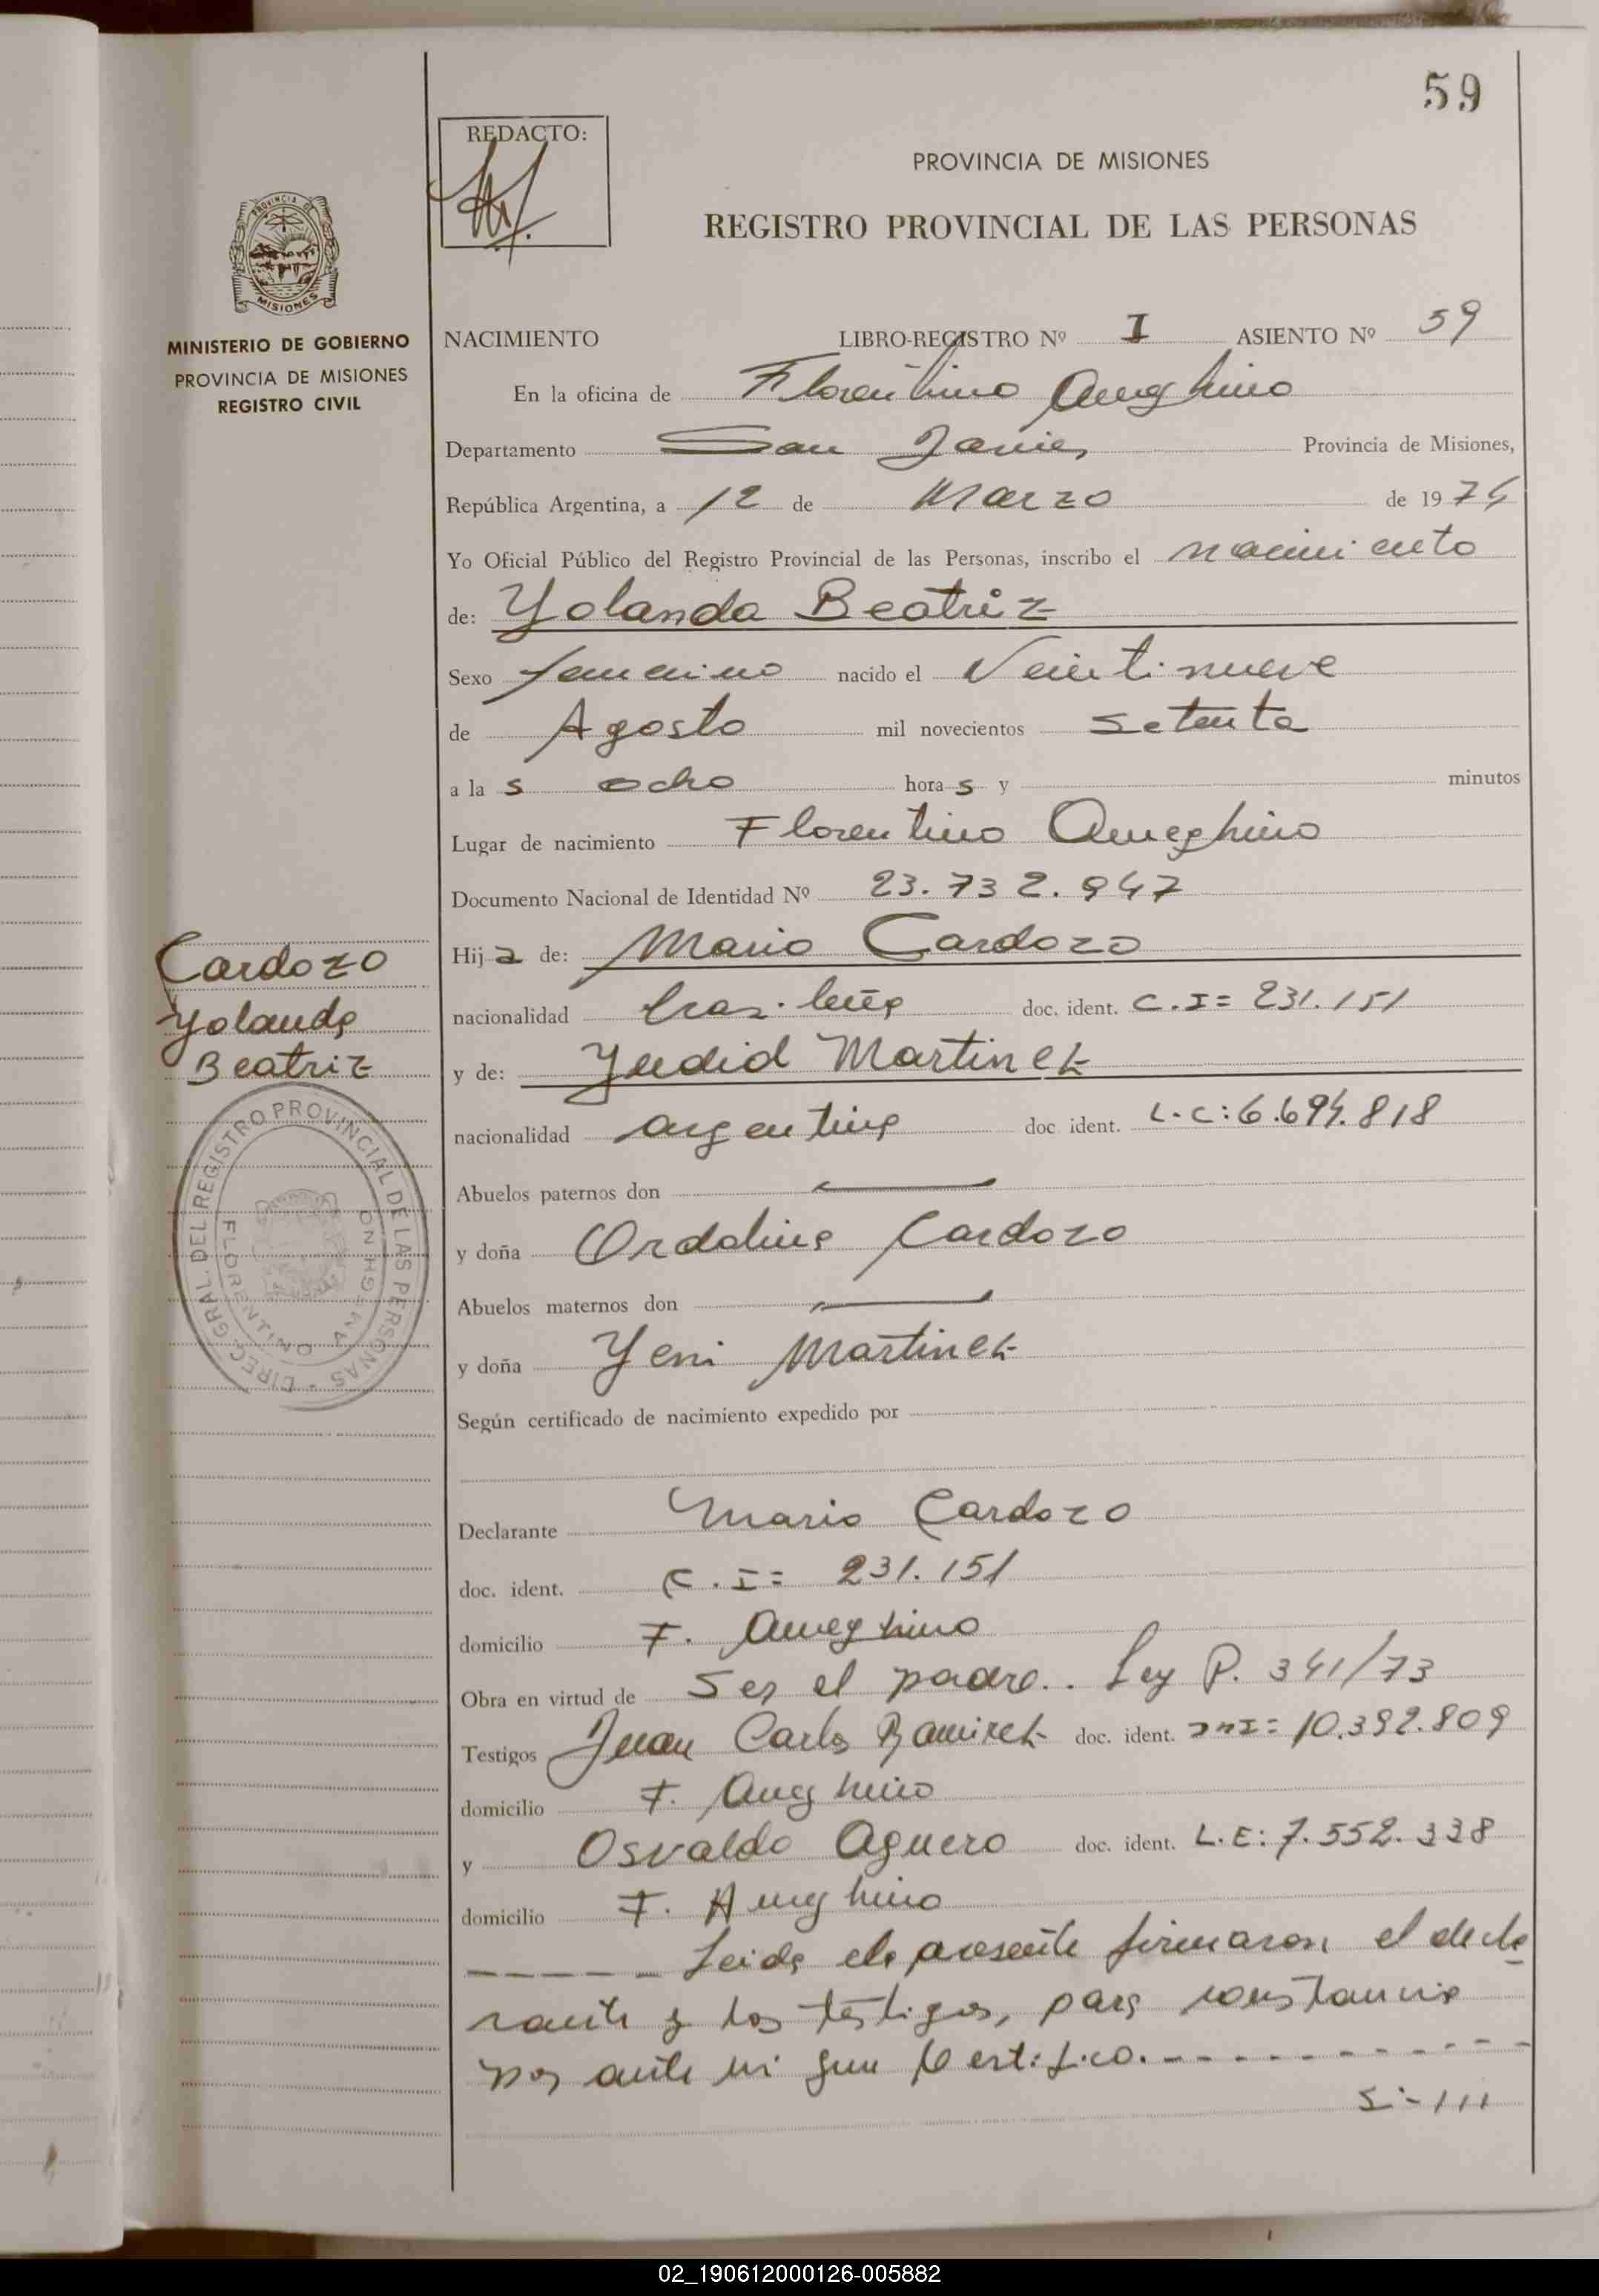 59
REDACTO:
PROVINCIA DE MISIONES
REGISTRO PROVINCIAL DE LAS PERSONAS
PROVINCIA DE
MISIONES
MINISTERIO DE GOBIERNO
PROVINCIA DE MISIONES
REGISTRO CIVIL
NACIMIENTO LIBRO-REGISTRO Nº I ASIENTO Nº 59
En la oficina de Florentino Ameghino
Departamento San Javier Provincia de Misiones,
República Argentina, a 12 de Marzo de 1974
Yo Oficial Público del Registro Provincial de las Personas, inscribo el nacimiento
de: Yolanda Beatriz
Sexo femenino nacido el Veintinueve
de Agosto mil novecientos setenta
a la s ocho hora s y minutos
Lugar de nacimiento Florentino Ameghino
Documento Nacional de Identidad Nº 23.732.947
Hij a de: Mario Cardozo
nacionalidad brasileña doc. ident. C.I= 231.151
y de: Yudid Martinez
nacionalidad argentina doc. ident. L.C: 6.694.818
Abuelos paternos don
y doña Ordalina Cardozo
Abuelos maternos don
y doña Yeni Martinez
Según certificado de nacimiento expedido por
Declarante Mario Cardozo
doc. ident. C.I= 231.151
domicilio F. Ameghino
Obra en virtud de Ser el padre.. Ley P. 341/73
Testigos Juan Carlos Ramirez doc. ident. DNI= 10.392.809
domicilio F. Ameghino
y Osvaldo Aguero doc. ident. L.E: 7.552.338
domicilio F. Ameghino
Leida la presente firmaron el decla
rante y los testigos, para constancia
por ante mi que Certifico.
Cardozo
Yolanda
Beatriz
DIREC. GRAL. DEL REGISTRO PROVINCIAL DE LAS PERSONAS
FLORENTINO AMEGHINO
02_190612000126-005882